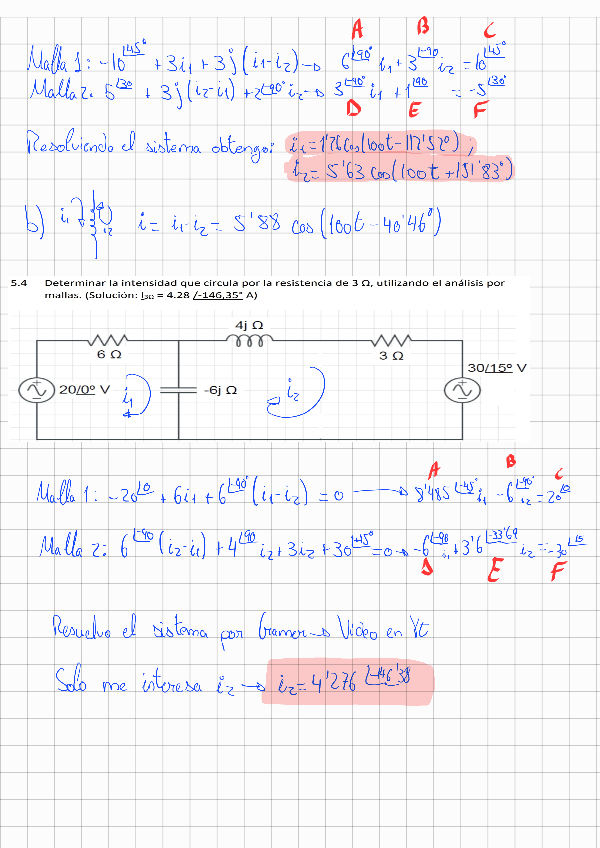 A B C
Malla 1: -10∠45° + 3i₁ + 3j (i₁-i₂) → 6∠90° i₁ + 3∠-90 i₂ = 10∠45°
Malla 2: 5∠30 + 3j (i₂-i₁) + 2∠-90° i₂ → 3∠-90 i₁ + 1∠90 = -5∠30°
D E F
Resolviendo el sistema obtengo: i₁ = 1'76 cos(100t - 117'52°) ;
i₂ = 5'63 cos(100t + 151'83°)
b) i₁ i₂ i = i₁-i₂ = 5'88 cos (100t - 40'46°)
5.4 Determinar la intensidad que circula por la resistencia de 3 Ω, utilizando el análisis por
mallas. (Solución: I3Ω = 4.28 /-146,35° A)
4j Ω
6 Ω 3 Ω
30/15° V
20/0° V i₁ -6j Ω i₂
A B C
Malla 1: -20∠0 + 6i₁ + 6∠-90° (i₁-i₂) = 0 → 8'485∠-45° i₁ - 6∠-90° i₂ = 20∠0
Malla 2: 6∠-90 (i₂-i₁) + 4∠90 i₂ + 3i₂ + 30∠+15° = 0 → -6∠-90 i₁ + 3'6∠-33'69 i₂ = -30∠15
D E F
Resuelvo el sistema por Cramer → Video en Yt
Solo me interesa i₂ → i₂ = 4'276∠-146'38